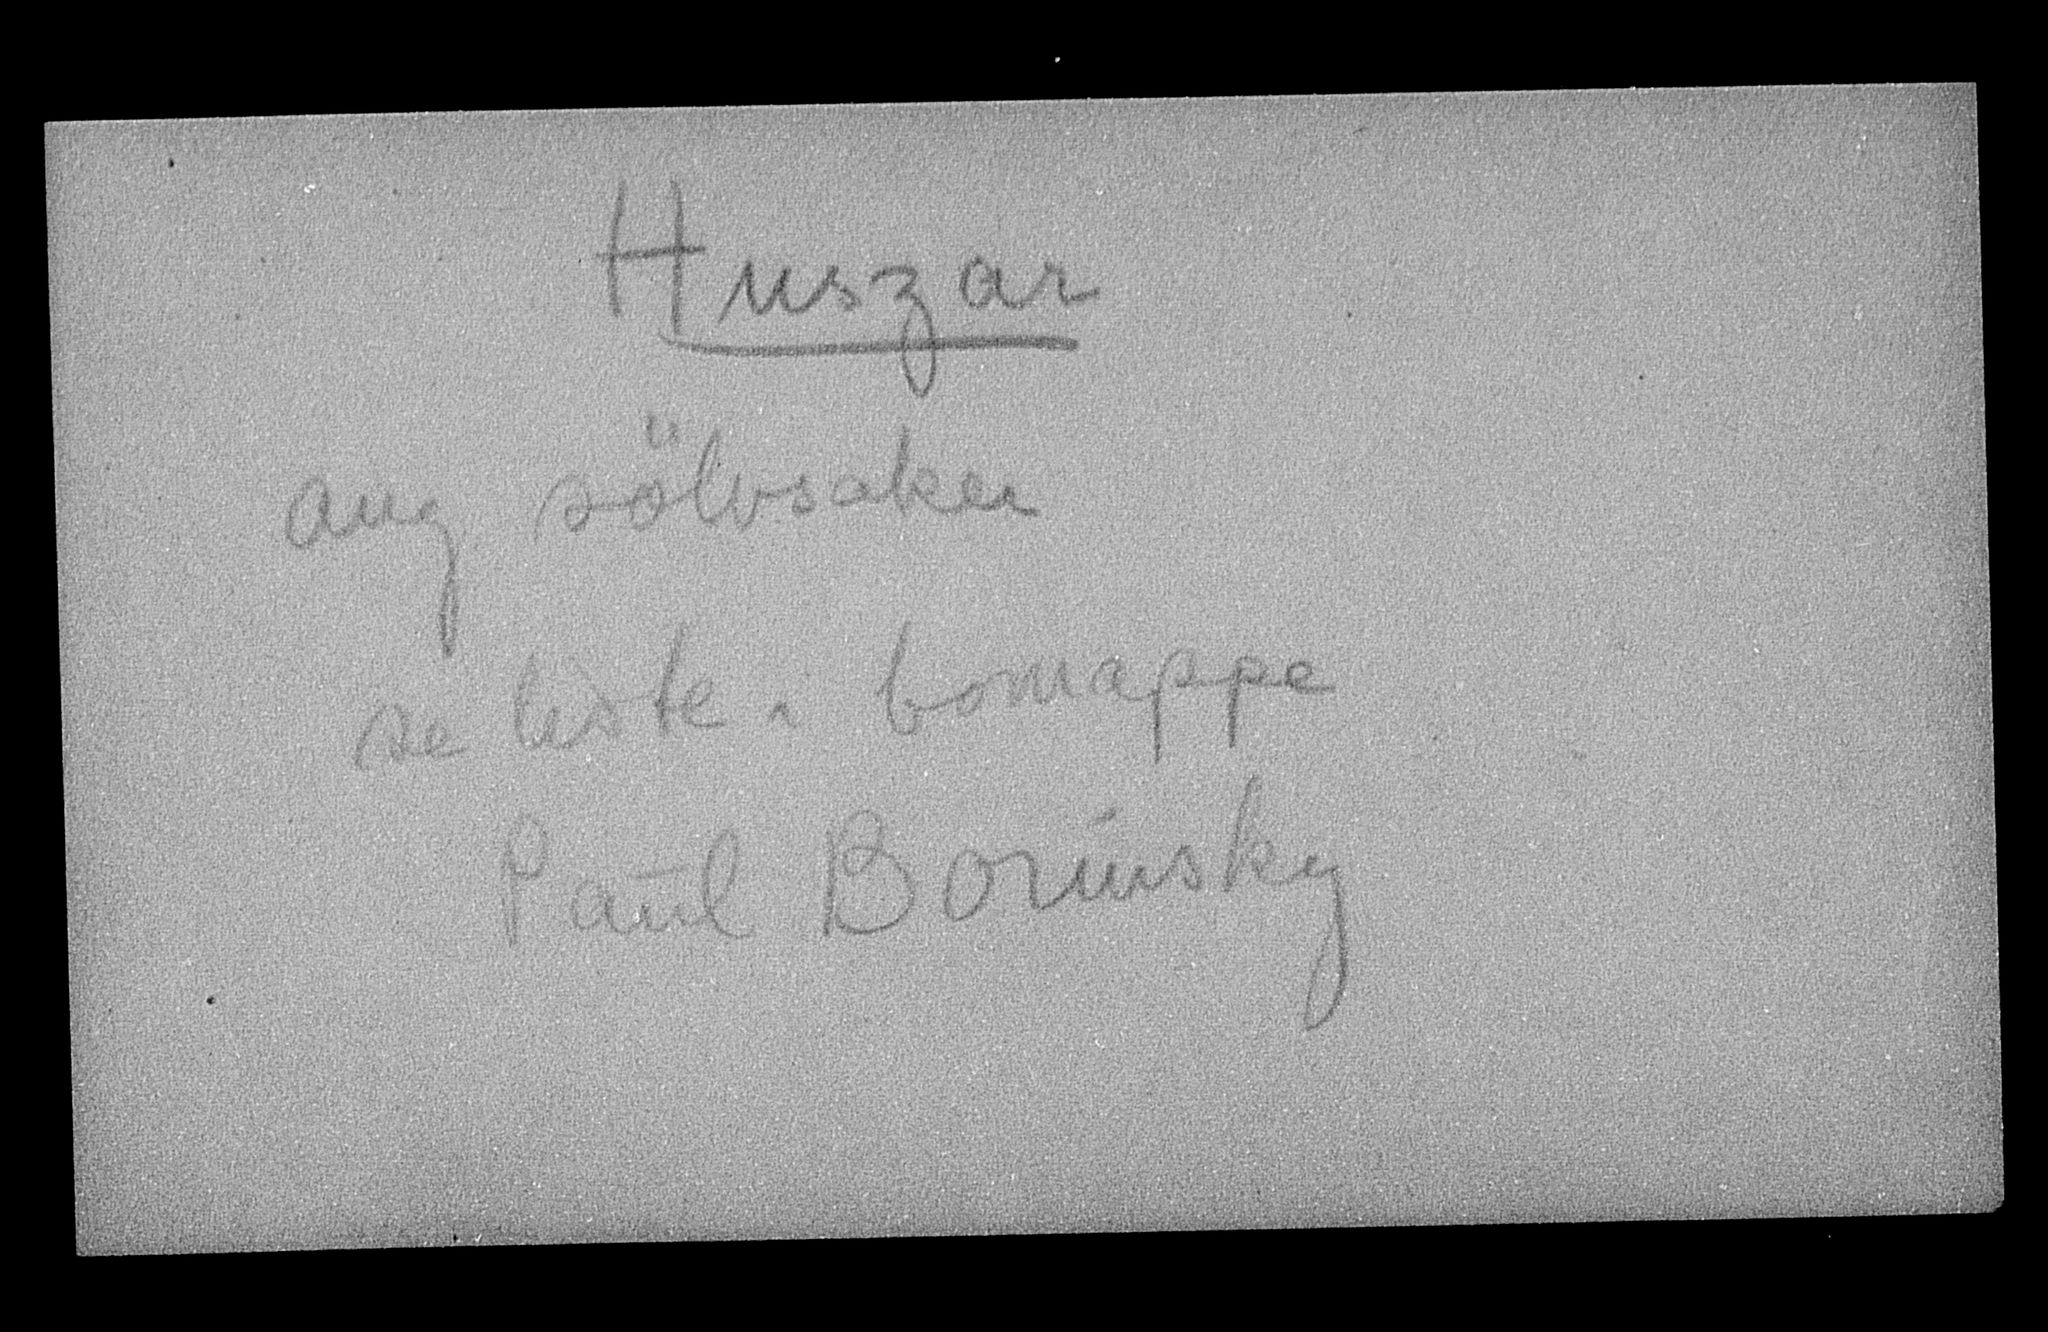 Huszar
ang sölvsaker
se liste i bomappe
Paul Borinsky